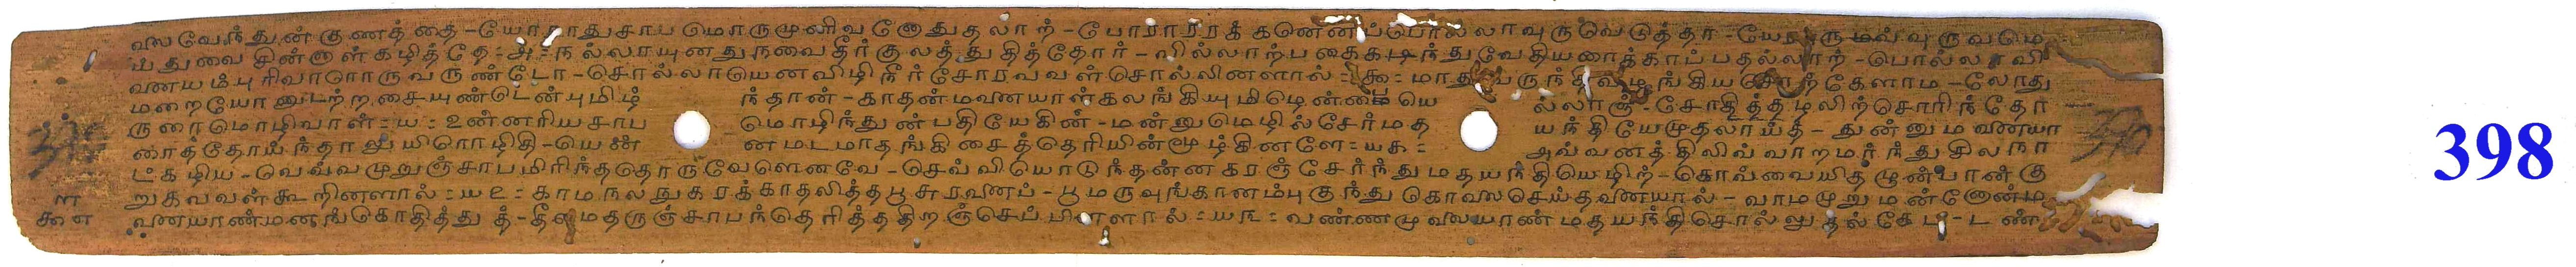 லைவேந்துன்குணத்தை-யோராதுசாபமொருமுனிவனோதுதலாற்-போராரரக்கனெனப்பொல்லாவுருவெடுத்தா-யேருருமவ்வுருவமெ
ய்துவை கின்னாள்கழித்தே=அ=நல்லாயுனதுநவைதீர்குலத்துதித்தோர்-வில்லாற்பகைகடிந்துவேதியரைக்காப்பதல்லாற்-பொல்லாவி
வணயம்புரிவாரொருவருண்டோ-சொல்லாயெனவிழிநீர்சோரவவள்சொல்லினளால்=கூ=மாதுவருந்திவழங்கியசொற்கேளாம-லோது
மறையோனுடற்றசையுண்டுடன்புமிழ்ந்தான்-காதன்மனையாள்கலங்கியுமிழென்பையெல்லாஞ்-சோதித்தழலிற்சொரிந்தோர்
ருரைமொழிவாள்=ய=உன்னரியசாபமொழிந்துன்பதியேகின்-மன்னுமெழில்சேர்மதயந்தியேமுதலாய்த்-துன்னுமனையா
ரைத்தோய்ந்தாலுயிரொழிதி-யென்னமடமாதங்கிசைத்தெரியின்மூழ்கினளே=யக=அவ்வனத்திலிவ்வாறமர்ந்துசிலநா
ட்கழிய-வெவ்வமுறுஞ்சாபமிரிந்ததொருவேளெனவே-செவ்வியொடுந்தன்னகரஞ்சேர்ந்துமதயந்தியெழிற்-கொவ்வையிதழுண்பான்கு
றுகவவள்கூறினளால்=யஉ=காமநலநுகரக்காதலித்தபூசுரனைப்-பூமருவுங்கானம்புகுந்துகொலைசெய்தவணயால்-வாமமுறுமன்னோன்ம
னையாண்மனங்கொதித்துத்-தீமைதருஞ்சாபந்தெரித்ததிறஞ்செப்பினளால்=யங=வண்ணமுலையாண்மதயந்திசொல்லுதல்கேட்-டண்
ளகூஅ
398